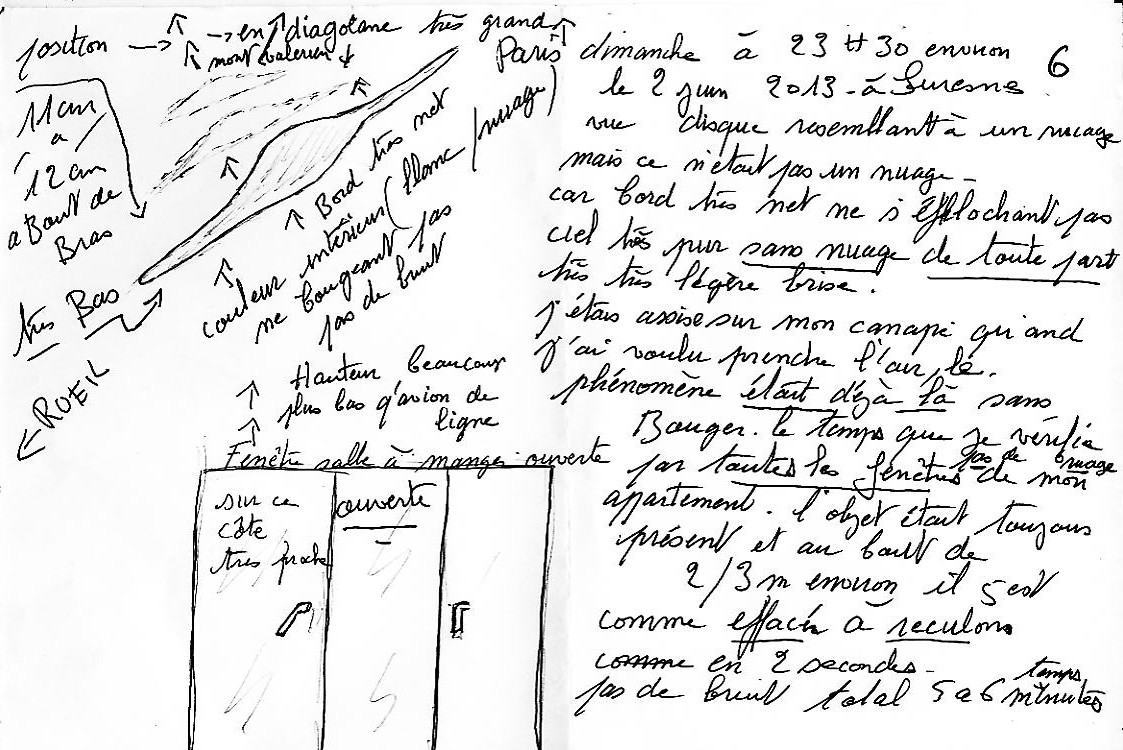 position → → en diagolane très grand
mont valerien
Paris
11 cm
à
12 cm
a Bout de
Bras
très Bas
← RUEIL
Bord très net
couleur intérieur (blanc / nuage)
ne bougeant pas
pas de bruit
Hauteur beaucoup
plus bas q'avion de
ligne
Fenêtre salle à manger ouverte
sur ce
côte
très proche
ouverte
6
dimanche à 23 H 30 environ
le 2 juin 2013 - à Suresnes
vue disque resemblant à un nuage
mais ce n'était pas un nuage -
car bord très net ne s'éffilochant pas
ciel très pur sans nuage de toute part
très très légère brise.
j'étais assise sur mon canapé quand
j'ai voulu prendre l'air, le.
phénomène était déjà là sans
Bouger. le temps que je vérifie
par toutes les fenêtres de mon
pas de nuage
apartement. l'objet était toujours
présent et au bout de
2/3 m environ il s'est
comme effacé à reculons
comme en 2 secondes -
pas de bruit total 5 a 6 minutes
temps